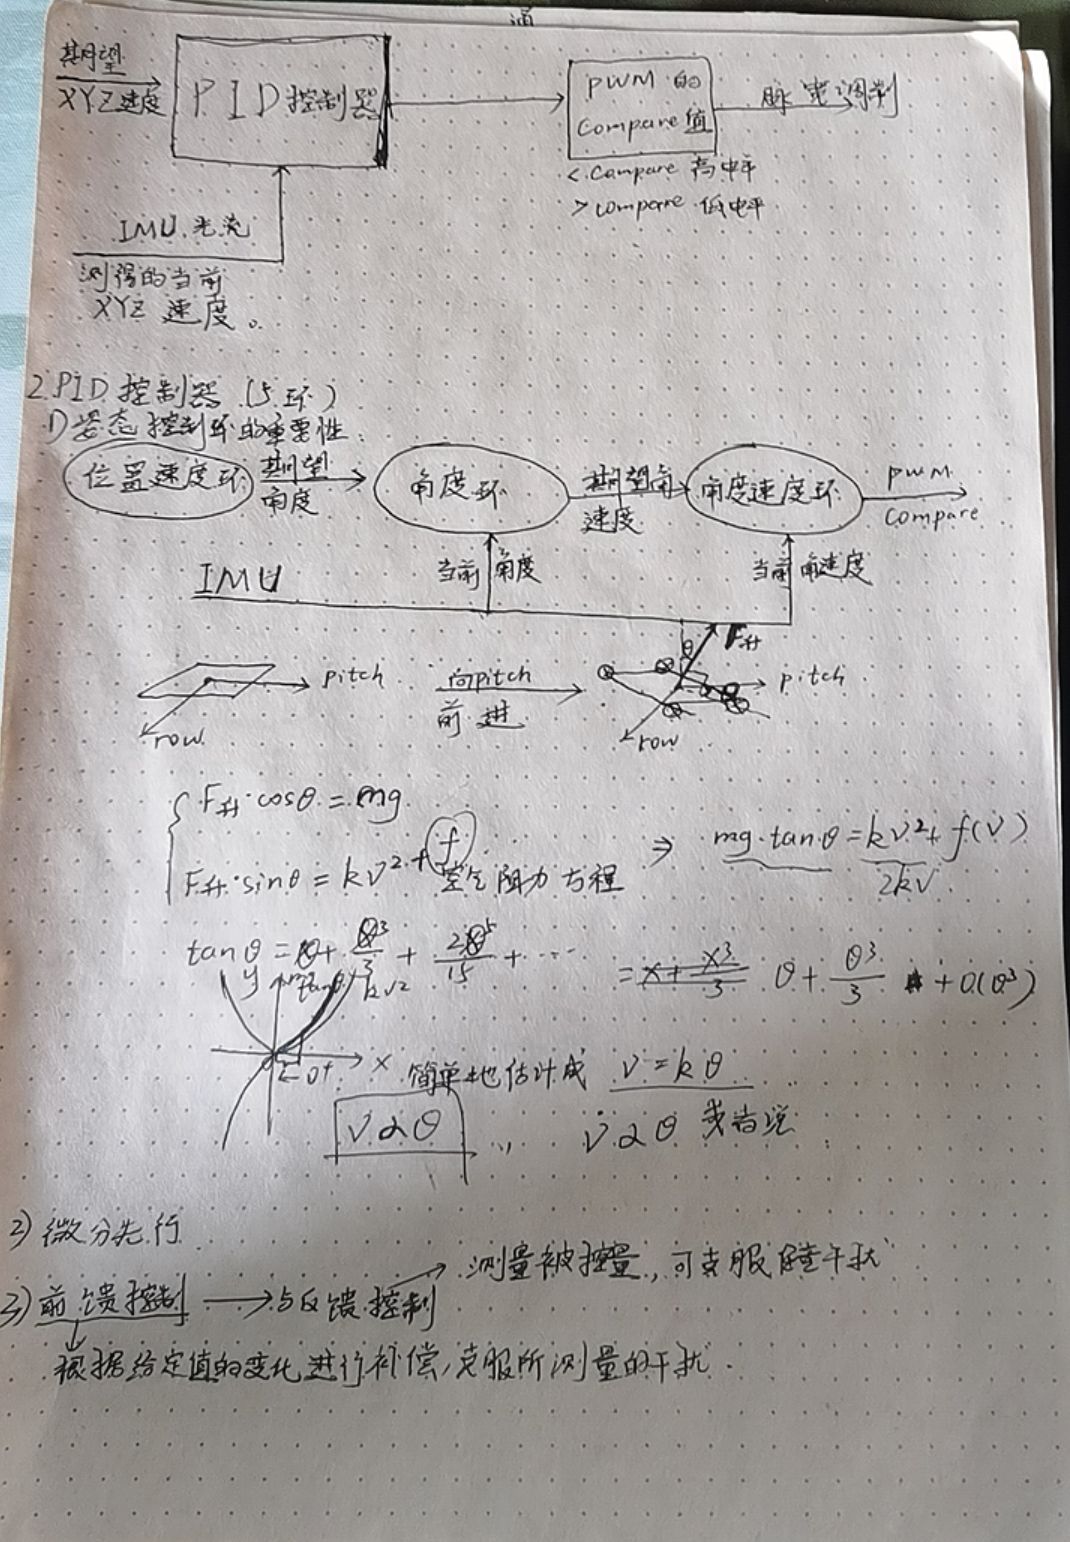 通
期望
XYZ速度
PID控制器
PWM的
Compare值
脉宽调制
< Compare 高电平
> compare 低电平
IMU.光流
测得的当前
XYZ 速度。
2.PID 控制器 (5环)
1)姿态控制环的重要性
位置速度环
期望
角度
角度环
期望角
速度
角度速度环
PWM
Compare
当前角度
当前角速度
IMU
F升
θ
pitch
row
向pitch
前进
pitch
row
F升·cosθ = mg
F升·sinθ = kv²+f
空气阻力方程
⇒ mg·tanθ = kv²+f(v)
2kv
tanθ = θ + θ³/3 + 2θ⁵/15 + ···
= x + x³/3 θ + θ³/3 + O(θ³)
y
mgtanθ
kv²
x
0+
简单地估计成 v=kθ
v∝θ
v∝θ 或者说
2) 微分先行
3)前馈控制 → 与反馈控制 → 测量被控量,可克服干扰
根据给定值的变化进行补偿,克服所测量的干扰.